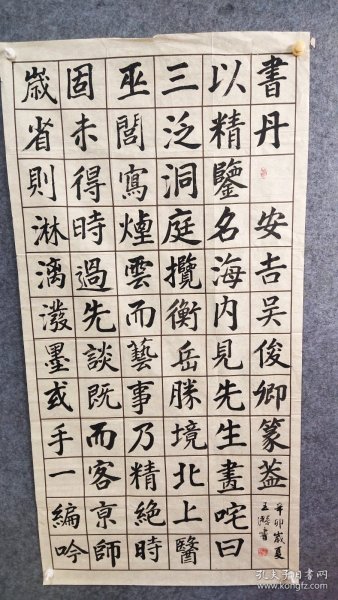 書丹 安吉吴俊卿篆蓋
以精鑒名海内見先生畫咤曰
三泛洞庭攬衡岳勝境北上醫
巫閭寫煙雲而藝事乃精絶時
固未得時過先談既而客京師
歲省則淋漓潑墨或手一編吟
辛卯歲夏
王書